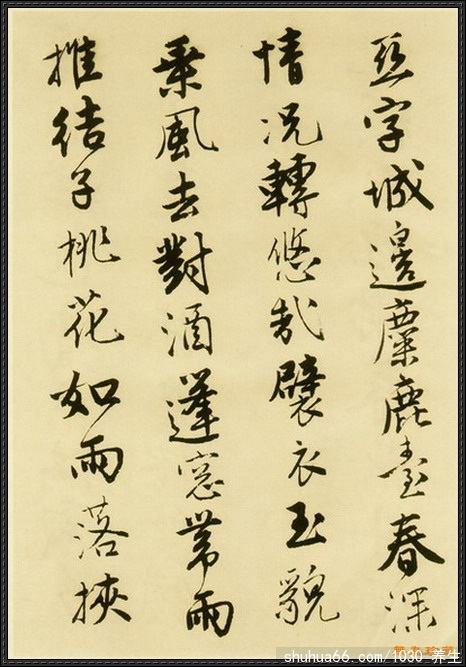 亞字城邊麋鹿臺春深
情况轉悠哉襞衣玉貌
乗風去對酒蓬窓帶雨
推結子桃花如雨落挾
shuhua66.com/1030-养生